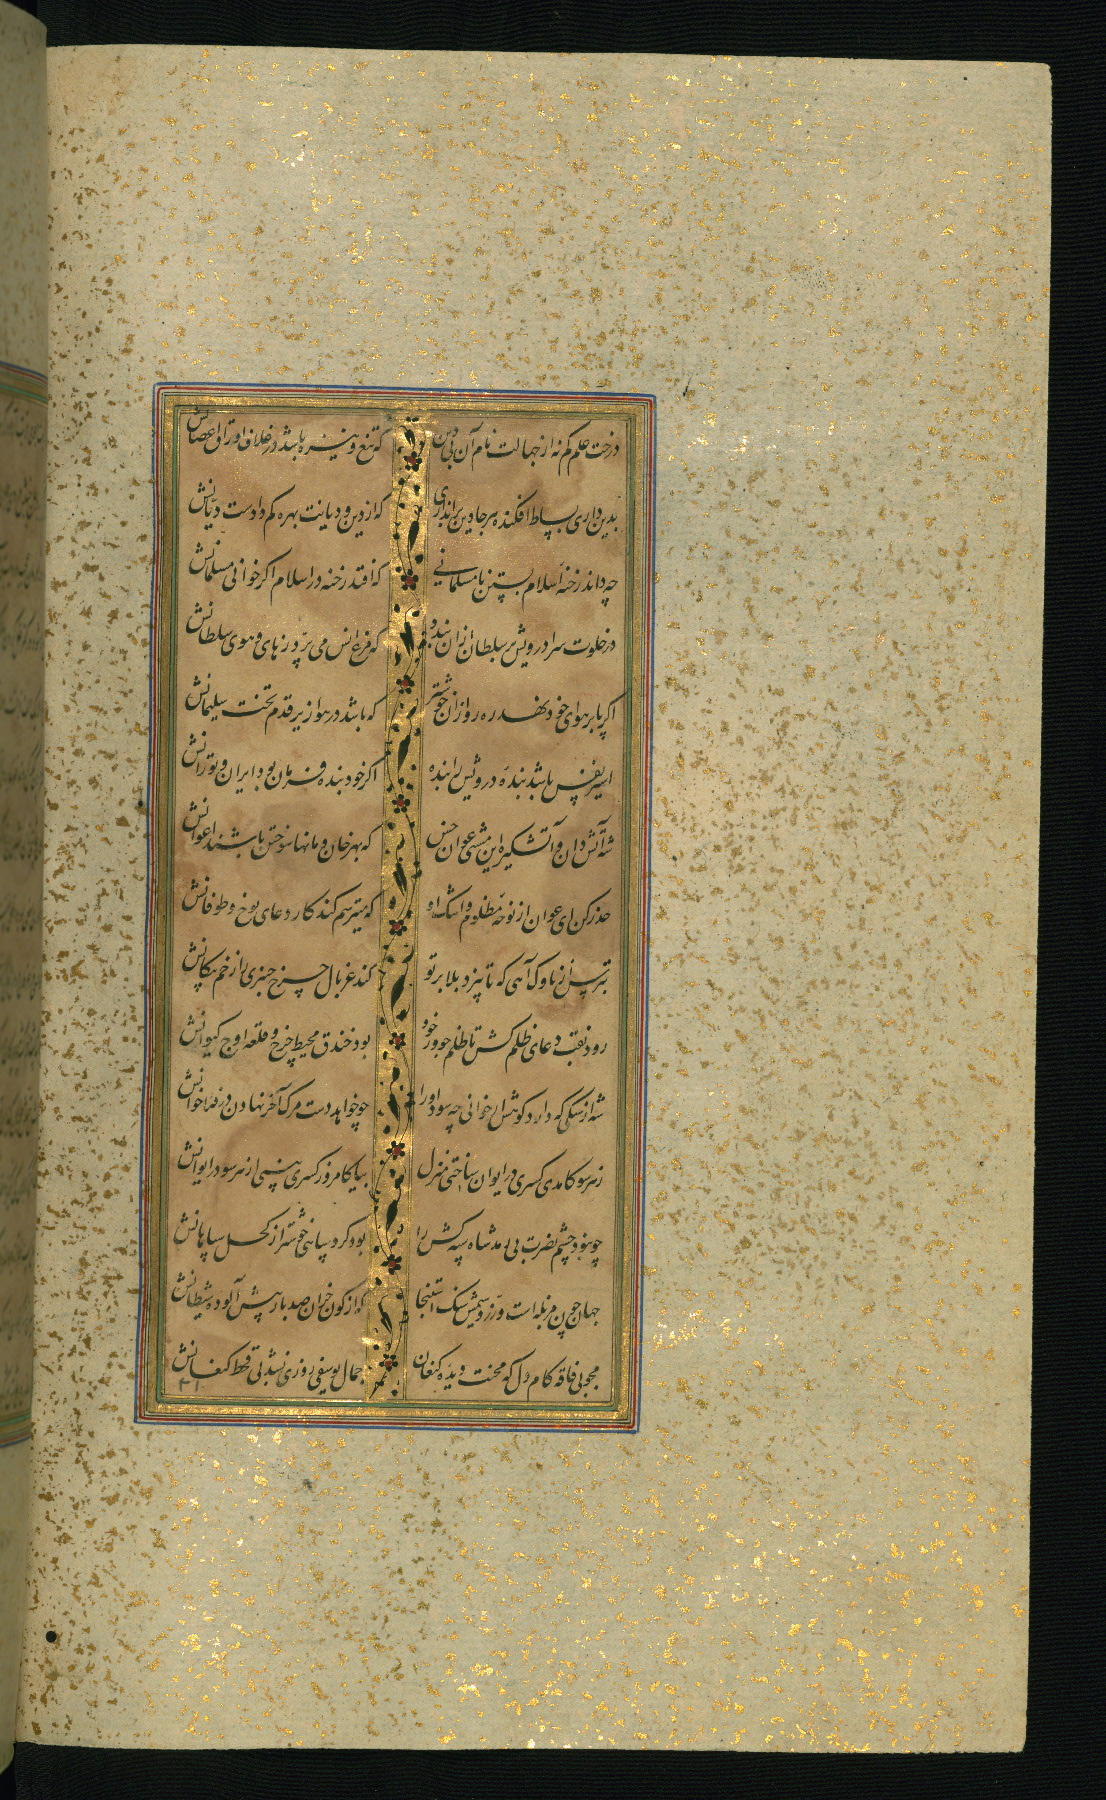 درخت علم کم نه از جهالت نام آن بی دین که تیغ و نیزه باشد در خلاف اوراق اغصانش
بدین داری بساط افکنده هر جا دین براندازی که از دین و دیانت بهره کم دادست دیانش
چه داند رخنه اسلام بستن نامسلمانی که افتد رخنه در اسلام اگر خوانی مسلمانش
در خلوت سرا درویش بر سلطان ازان بندد که مرغ انس می پرد ز های و هوی سلطانش
اگر پا بر هوای خود نهد ره رو ازان خوشتر که باشد در هوا زیر قدم تخت سلیمانش
اسیر نفس باشد بنده درویش را بنده اگر خود بنده فرمان بود ایران و تورانش
شه آتش دان و آتشگیره این مشتی عوان خس که بهر خان و مانها سوختن باشند اعوانش
حذر کن ای عوان از نوحه مظلوم و اشک او که میترسم کند کار دعای نوح و طوفانش
بترس از ناوک آهی که تا بیزد بلا بر تو کند غربال چرخ چنبری از زخم پیکانش
رود نقب دعای ظلم کش تا ظلم جو ور خود بود خندق محیط چرخ و قلعه اوج کیوانش
شه ار سگی که دارد گوهرش خوانی چه سود او را چو خواهد دست مرگ آخر نهادن در فلاخانش
زهر سو کامدی کسری در ایوان ساختی منزل بیا کامروز کسری بینی از هر سو در ایوانش
چو نبود چشم نصرت بی رمد شاه سپه کش را بود گرد سپاهی خوشتر از کحل سپاهانش
جهان چون مزبله است و زر و سیمش سنگ استنجا که از کون خران صد بار بیش آلوده شیطانش
مجو بی فاقه کام دل که محنت دیده کنعان جمال یوسفی روزی نشد بی قحط کنعانش